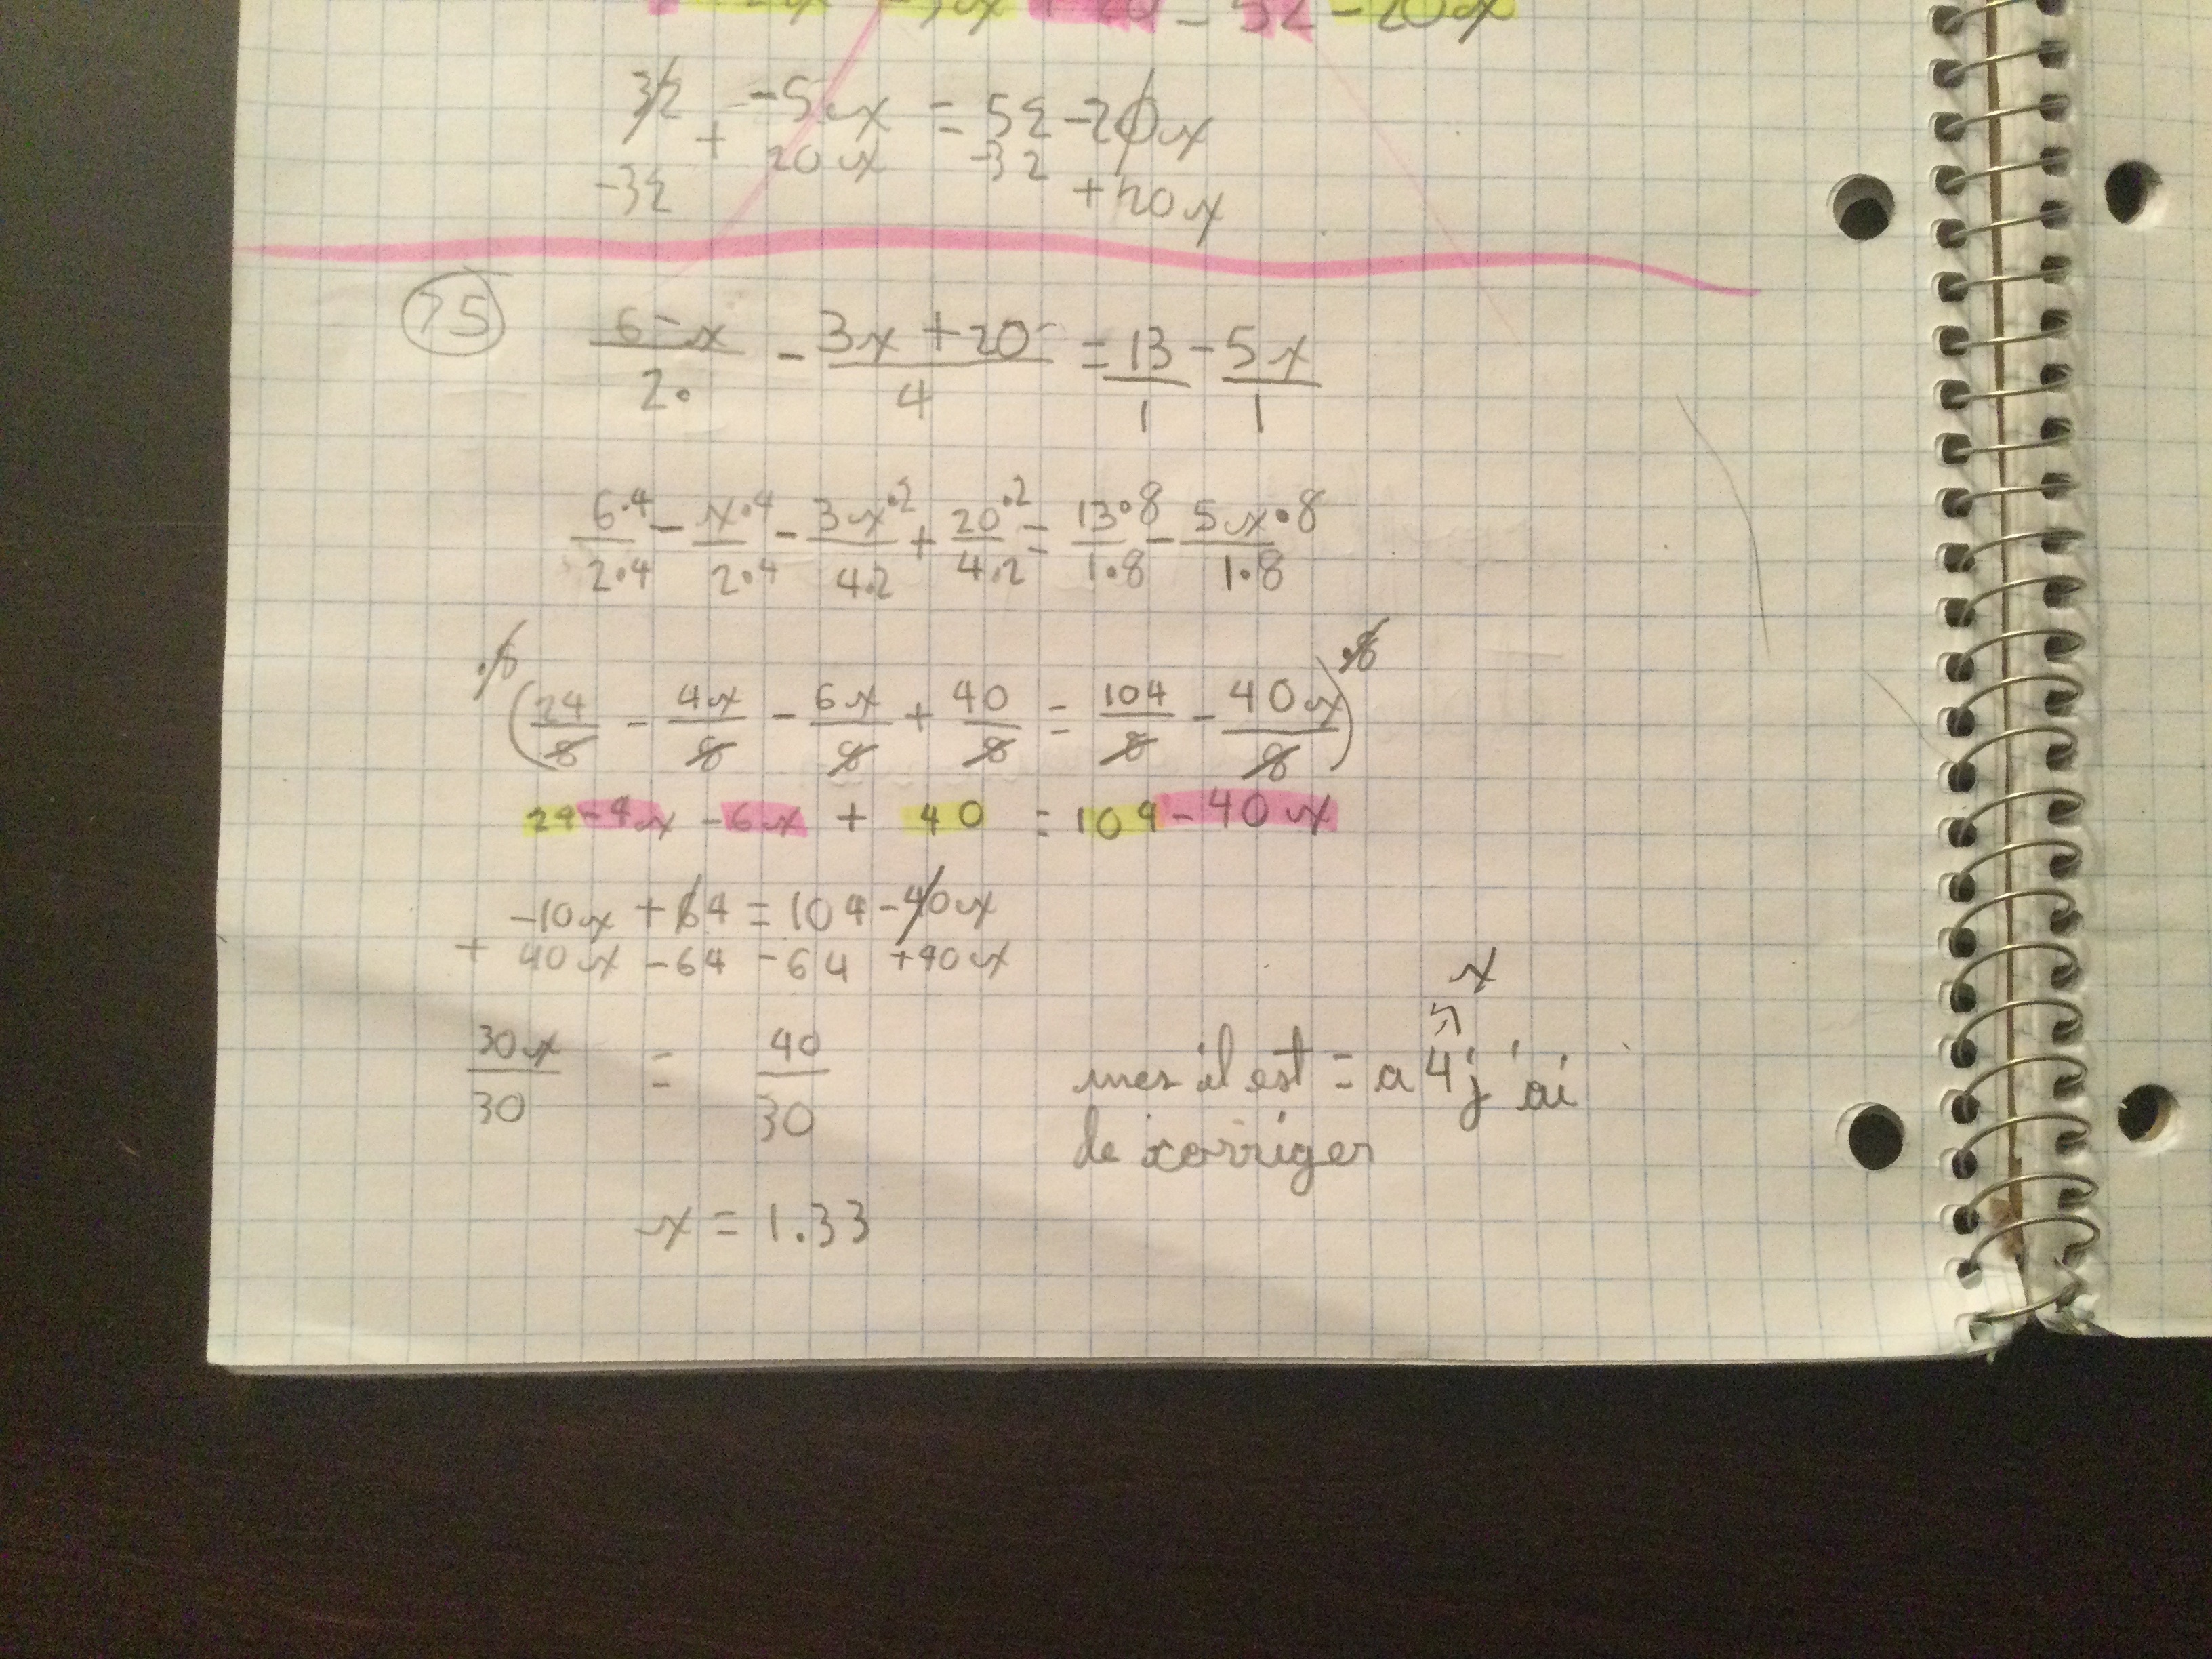 32 + -5x = 52 - 20x
-32 20x -32 +20x
75
6 - x / 2 - 3x + 20 / 4 = 13 / 1 - 5x / 1
6·4 / 2·4 - x·4 / 2·4 - 3x·2 / 4·2 + 20·2 / 4·2 = 13·8 / 1·8 - 5x·8 / 1·8
·8 ( 24 / 8 - 4x / 8 - 6x / 8 + 40 / 8 = 104 / 8 - 40x / 8 ) ·8
24 - 4x - 6x + 40 = 104 - 40x
-10x + 64 = 104 - 40x
+ 40x - 64 - 64 + 40x
30x / 30 = 40 / 30
x
mes il est = a 4 j'ai
de corriger
x = 1.33